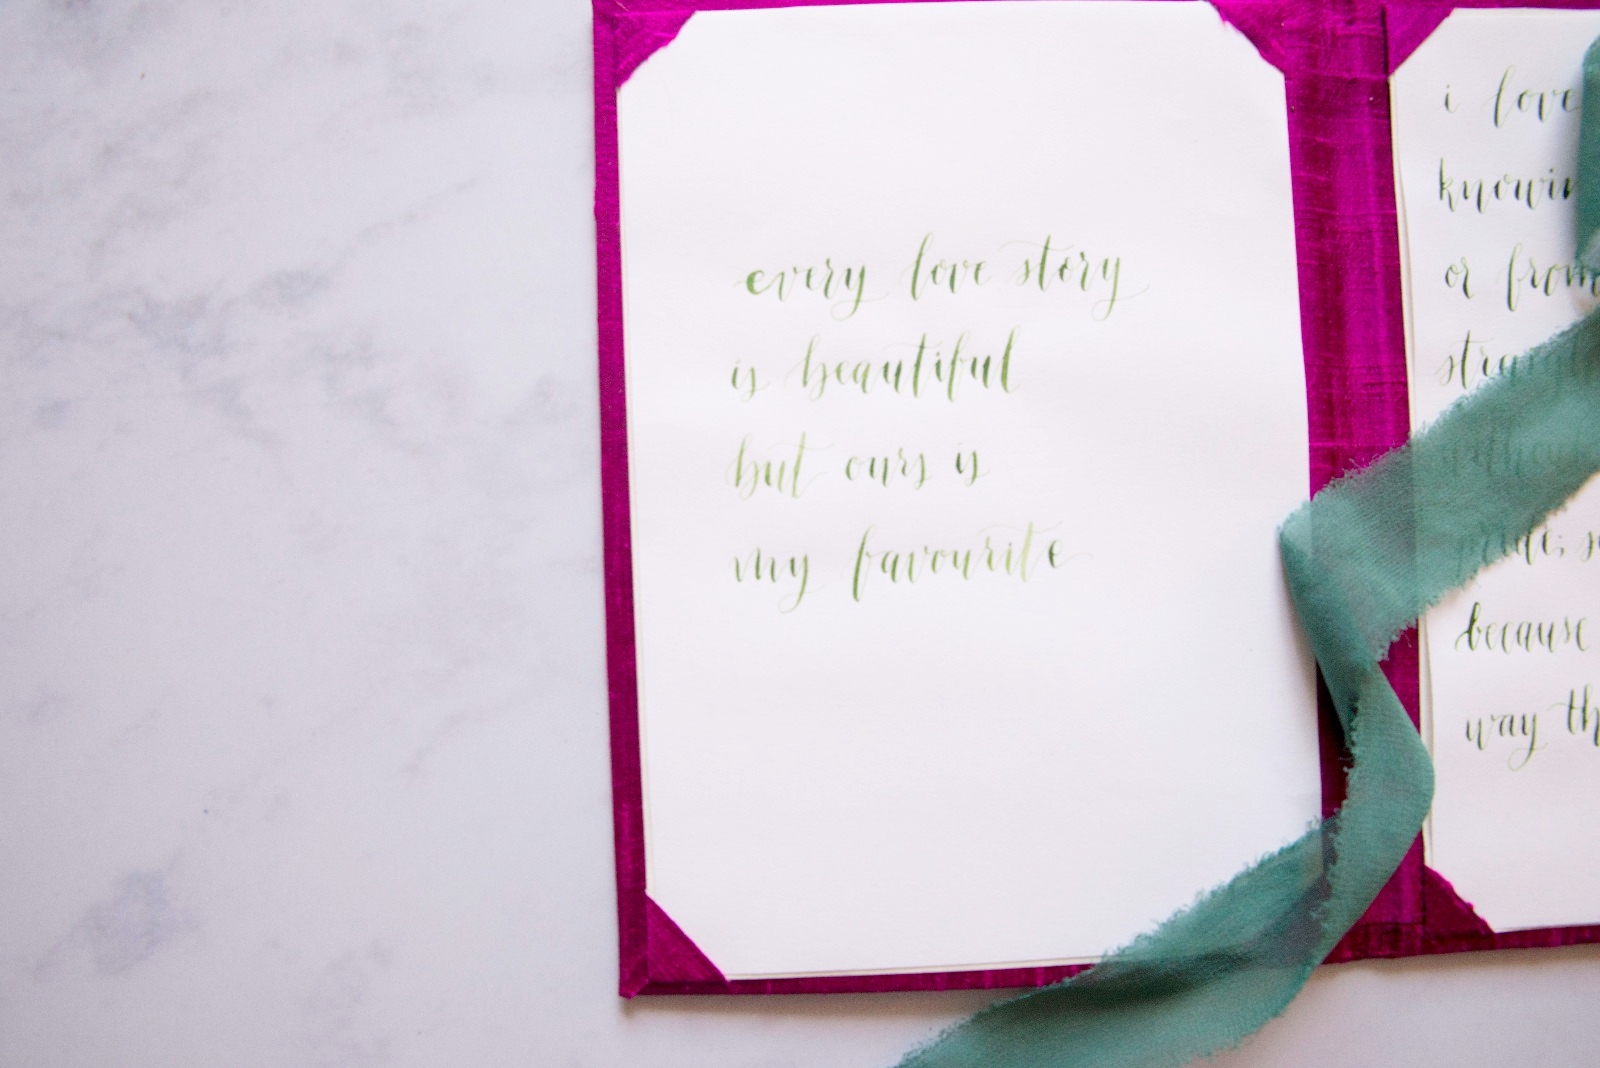 every love story
is beautiful
but ours is
my favourite
i love
knowin
or from
straig
without
pride; so
because
way th